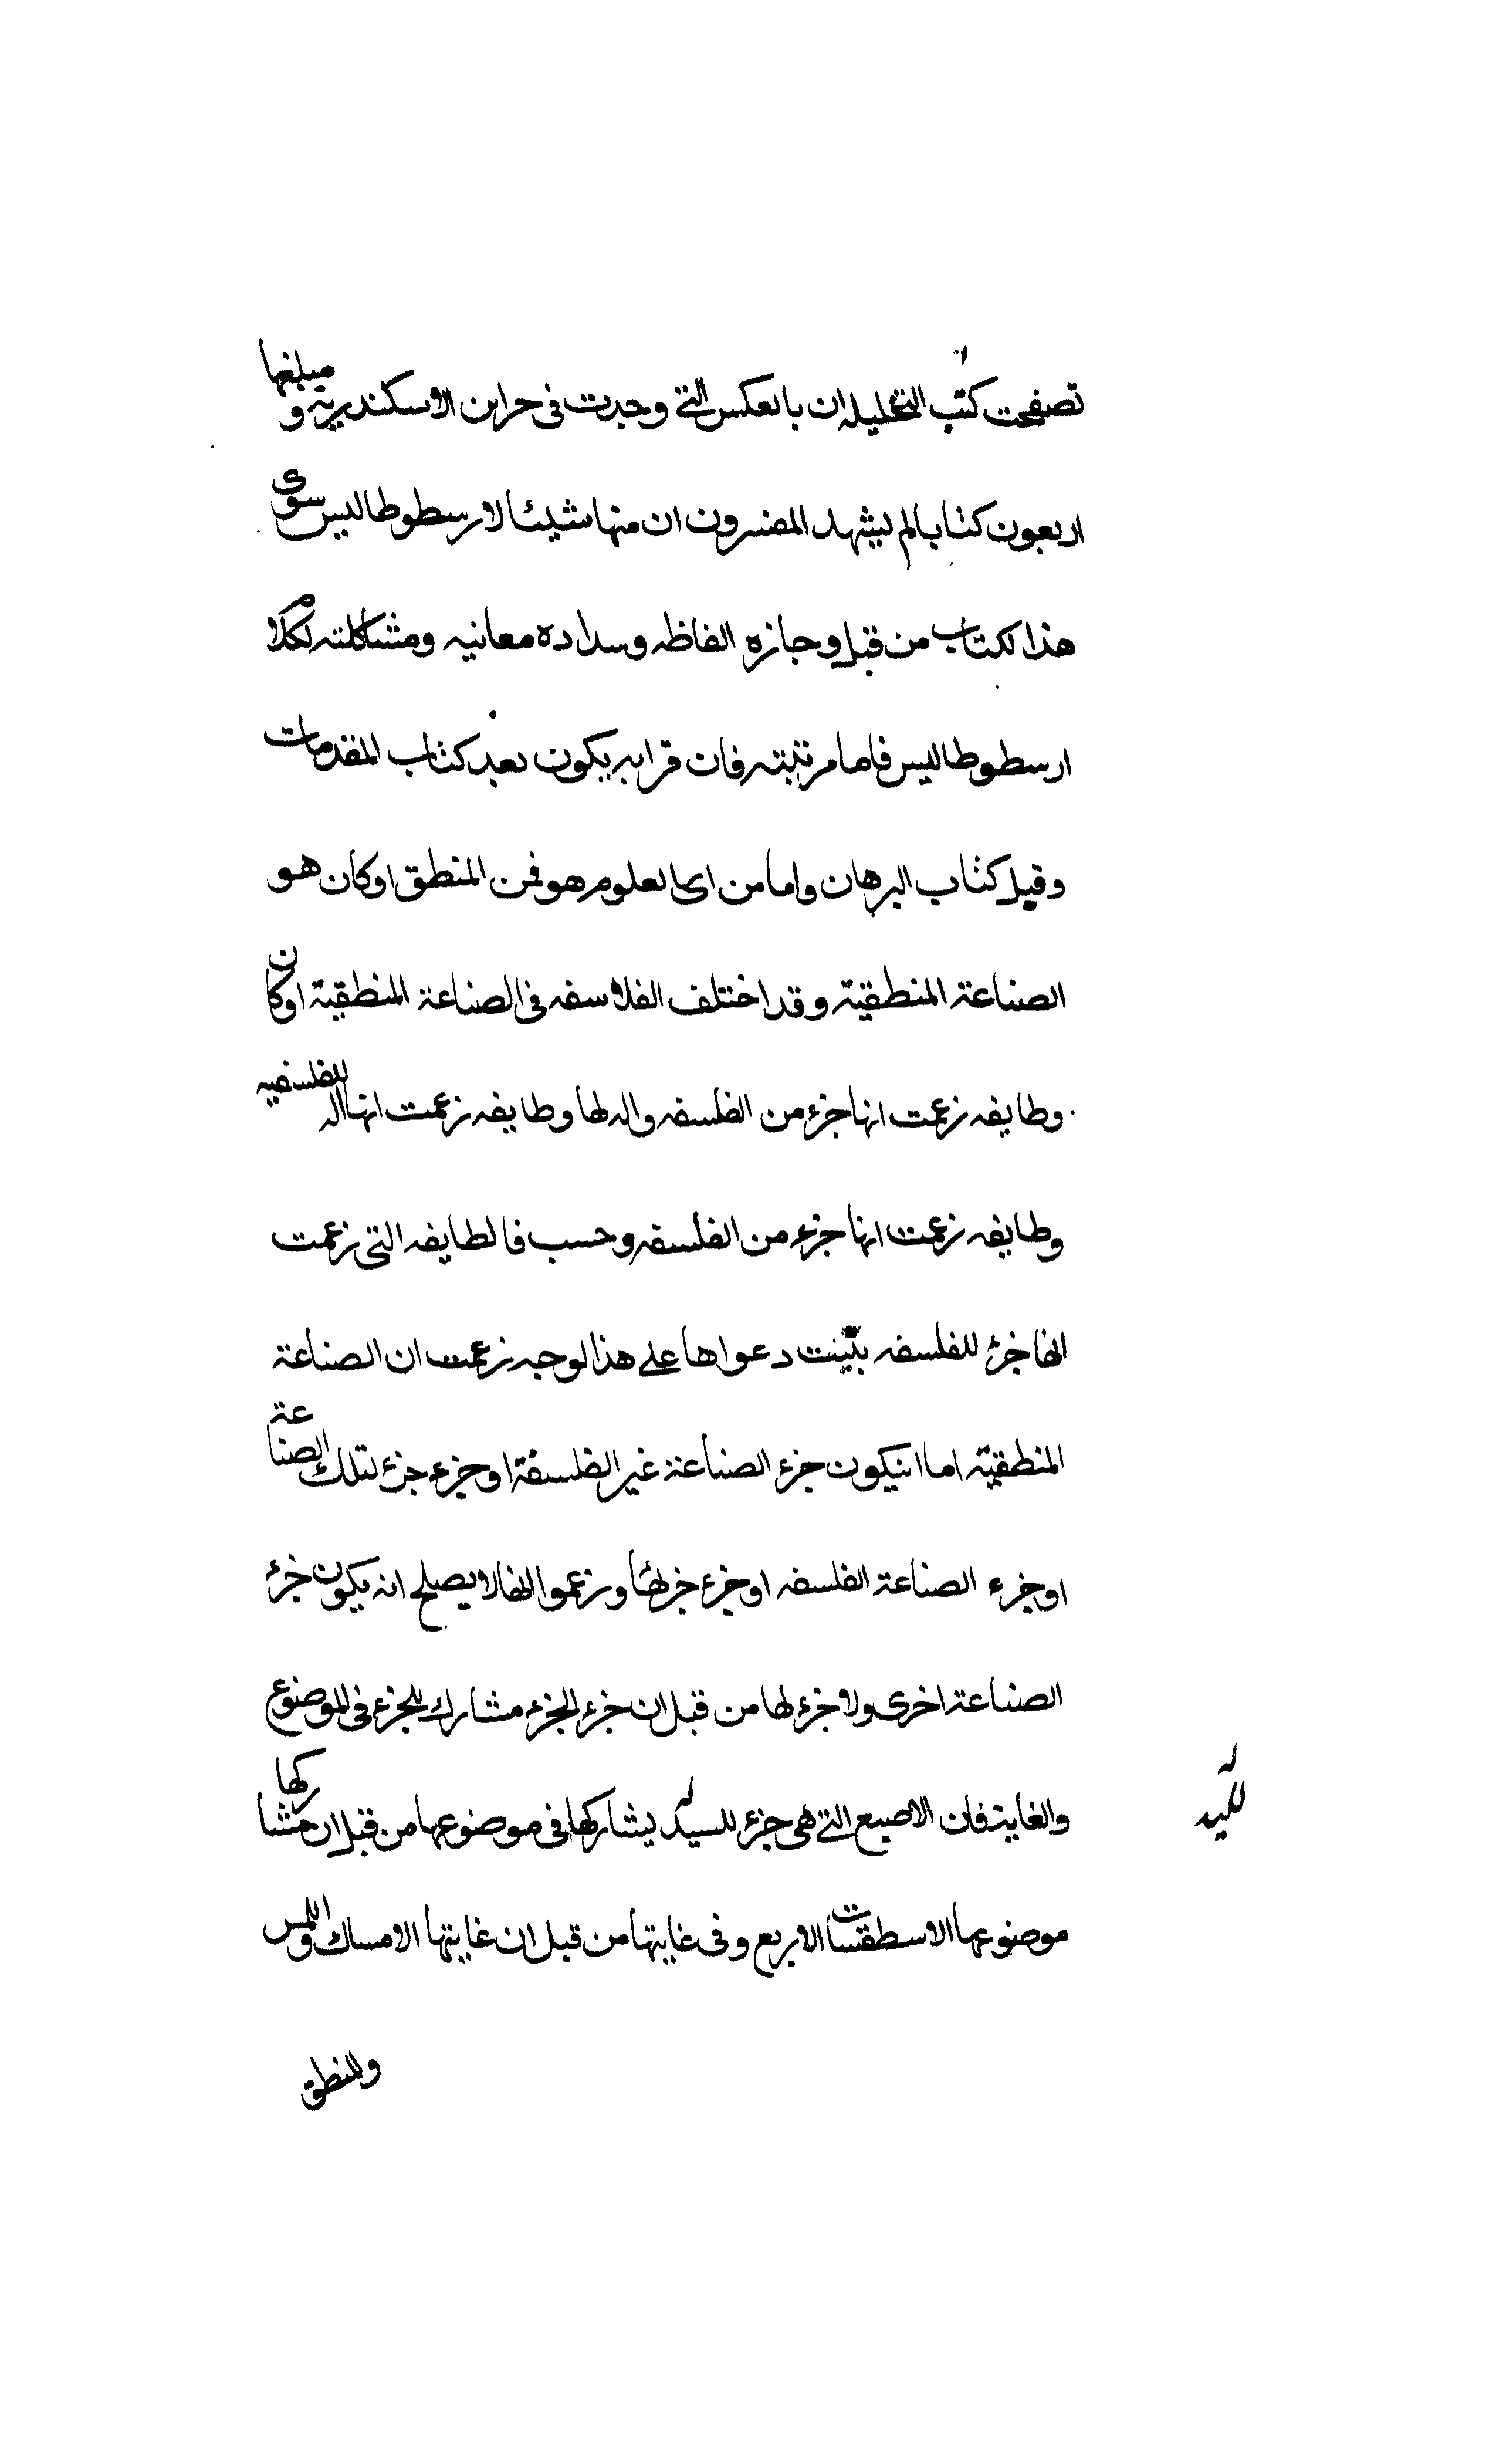 تصفحت كتب التحليلان بالعكس التى وجدت فى حراين الاسكندرية و مبلغها
اربعون كتابا لم يشهد المفسرون ان منها شيئا لارسطوطاليس سوى
هذا لكتاب من قبل وجازه الفاظه وسداده معانيه ومشاكلته لكلام
ارسطوطاليس فاما مرتبته فان قرابه يكون بعد كتاب المقدمات
وقبل كتاب البرهان واما من اى العلوم هو فمن المنطق اوكان هو
الصناعة المنطقية وقد اختلف الفلاسفه فى الصناعة المنطقية اوكان
وطايفه زعمت انها جزء من الفلسفه واله لها وطايفه زعمت انها اله للفلسفيه
وطايفه زعمت انها جزء من الفلسفه وحسب فالطايفه التى زعمت
انها جزء للفلسفه بيّنت دعواها على هذا لوجه زعمت ان الصناعة
المنطقيّة اما انيكون جزء الصناعة غير الفلسفة اوجزء جزء لتلك الصناعة
اوجزء الصناعة الفلسفه اوجزء جزئها وزعموا انها لا يصلح انه يكون جزء
الصناعة اخرى ولا جزء لها من قبل ان جزء الجزء مشارك للجزء فى الموضوع
والغاية فان الاصبع التى هى جزء للسيد يشاركها فى موضوعها من قبل ان مشاركها
لليد
موضوعها الاسطقسات الاربع وفى غايتها من قبل ان غايتها الامساك واللمس
والمنطق